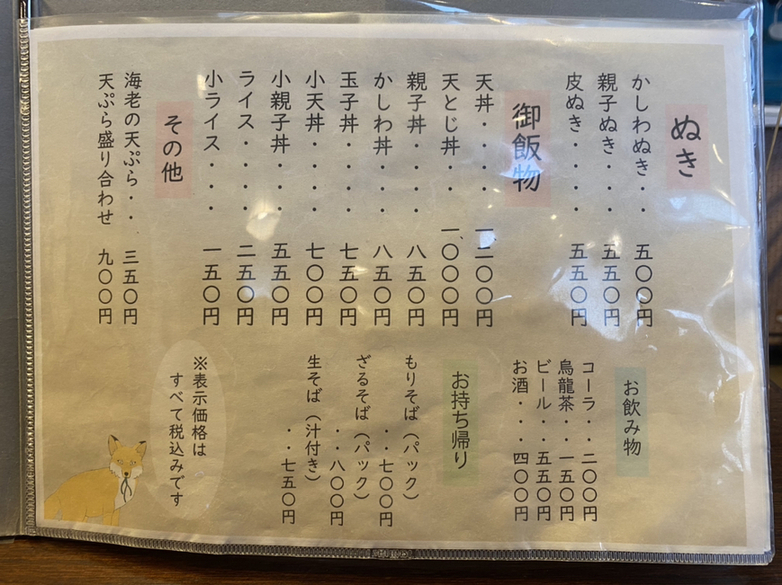 ぬき
かしわぬき・・五〇〇円
親子ぬき・・・五五〇円
皮ぬき・・・・五五〇円
御飯物
天丼・・・・一、二〇〇円
天とじ丼・・一、〇〇〇円
親子丼・・・八五〇円
かしわ丼・・八五〇円
玉子丼・・・七五〇円
小天丼・・・七〇〇円
小親子丼・・五五〇円
ライス・・・二五〇円
小ライス・・一五〇円
その他
海老の天ぷら・・三五〇円
天ぷら盛り合わせ 九〇〇円
お飲み物
コーラ・・二〇〇円
烏龍茶・・一五〇円
ビール・・五五〇円
お酒・・・四〇〇円
お持ち帰り
もりそば（パック）
・・七〇〇円
ざるそば（パック）
・・八〇〇円
生そば（汁付き）
・・七五〇円
※表示価格は
すべて税込みです